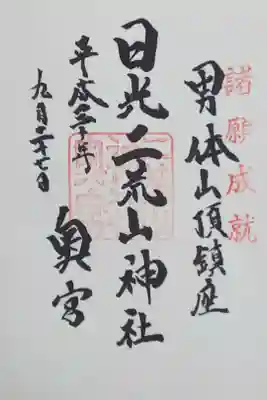 諸願成就
男体山頂鎮座
日光二荒山神社
奥宮
平成三十年
九月二十七日